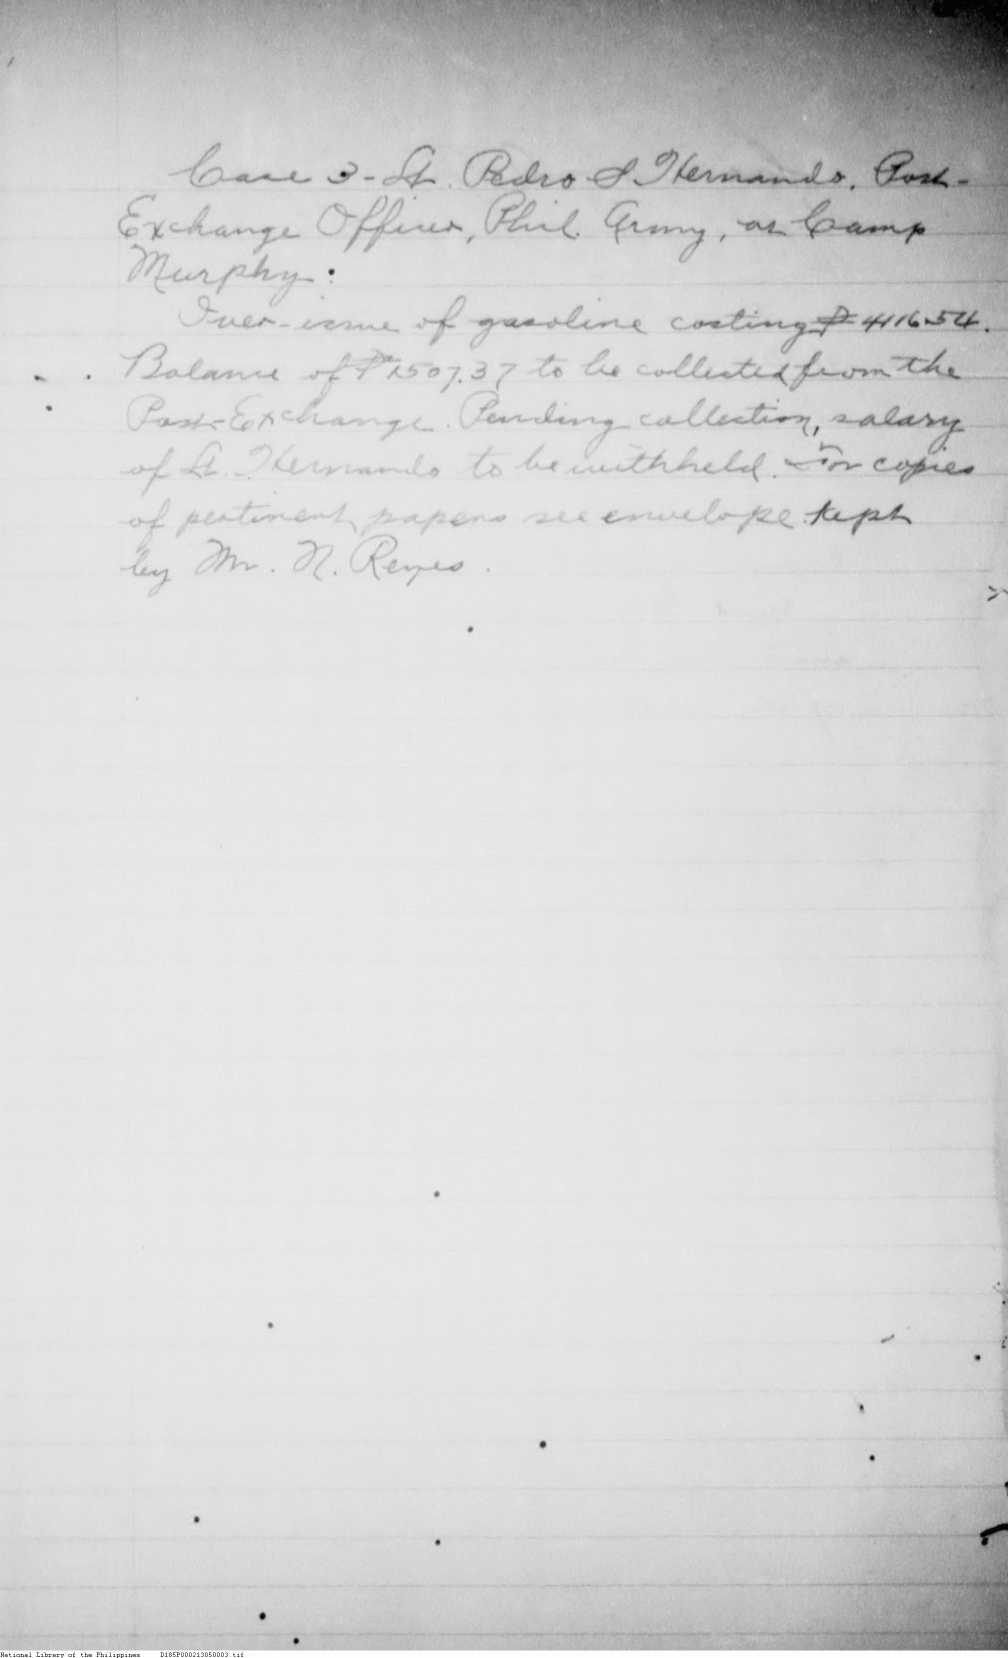 Case 3 - Lt. Pedro S. Hernando, Post-
Exchange Officer, Phil. Army, at Camp
Murphy:
Over-issue of gasoline costing ₱4116.54.
Balance of ₱2507.37 to be collected from the
Post-Exchange. Pending collection, salary
of Lt. Hernando to be withheld. For copies
of pertinent papers see envelope kept
by Mr. N. Reyes.
National Library of the Philippines D185P000213050003.tif